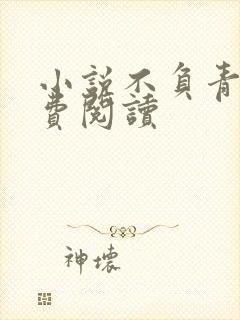 小說不負青
費閱讀
神壞